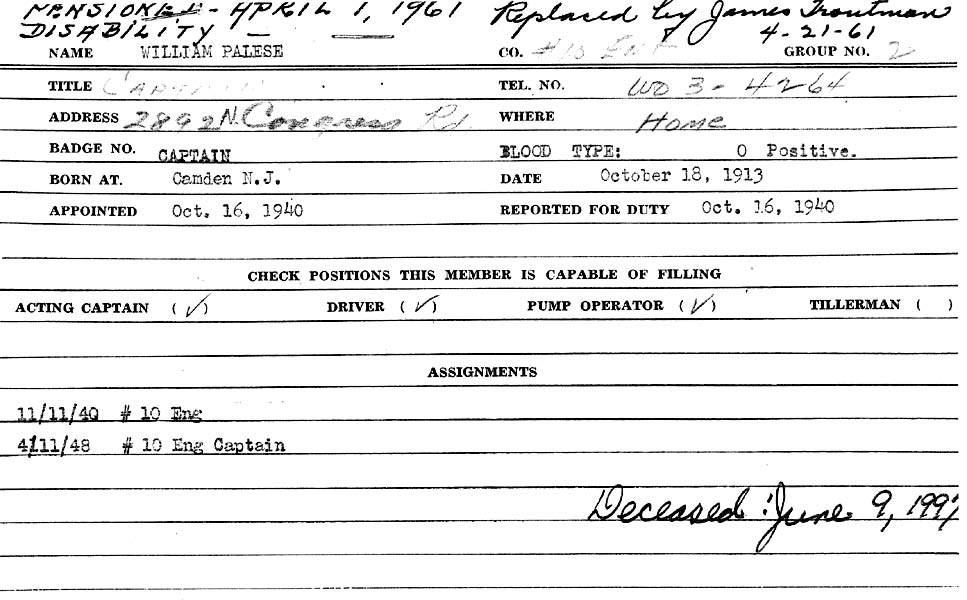 PENSIONED - APRIL 1, 1961 Replaced by James Troutman
DISABILITY - 4-21-61
NAME WILLIAM PALESE CO. #10 ENG GROUP NO. 2
TITLE CAPTAIN TEL. NO. WO 3-4264
ADDRESS 2892 N. Congress Rd. WHERE Home
BADGE NO. CAPTAIN BLOOD TYPE: O Positive.
BORN AT. Camden N.J. DATE October 18, 1913
APPOINTED Oct. 16, 1940 REPORTED FOR DUTY Oct. 16, 1940
CHECK POSITIONS THIS MEMBER IS CAPABLE OF FILLING
ACTING CAPTAIN (✓) DRIVER (✓) PUMP OPERATOR (✓) TILLERMAN ( )
ASSIGNMENTS
11/11/40 # 10 Eng
4/11/48 # 10 Eng Captain
Deceased: June 9, 1997